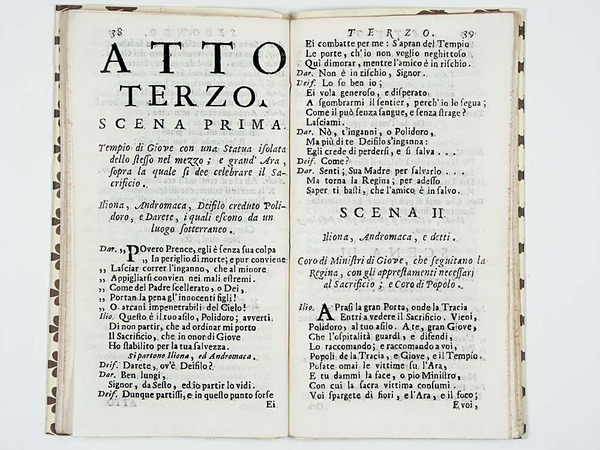 38
ATTO
TERZO.
SCENA PRIMA.
Tempio di Giove con una Statua isolata
dello stesso nel mezzo; e grand' Ara,
sopra la quale si dee celebrare il Sa-
crificio.
Iliona, Andromaca, Deifilo creduto Poli-
doro, e Darete, i quali escono da un
luogo sotterraneo.
Dar. ,, POvero Prence, egli è senza sua colpa
,, In periglio di morte; e pur conviene
,, Lasciar correr l'inganno, che al minore
,, Appigliarsi convien nei mali estremi.
,, Come del Padre scellerato, o Dei,
,, Portan la pena gl' innocenti figli!
,, O arcani impenetrabili del Cielo!
Ilio. Questo è il tuo asilo, Polidoro; avverti.
Di non partir, che ad ordinar mi porto
Il Sacrificio, che in onor di Giove
Ho stabilito per la tua salvezza.
Si partono Iliona, ed Andromaca.
Deif. Darete, ov'è Deifilo?
Dar. Ben lungi,
Signor, da Sesto, ed io partir lo vidi.
Deif. Dunque partissi, e in questo punto forse
Ei
TERZO. 39
Ei combatte per me: S'apran del Tempio
Le porte, ch'io non voglio neghittoso
Quì dimorar, mentre l'amico è in rischio.
Dar. Non è in rischio, Signor.
Deif. Lo so ben io;
Ei vola generoso, e disperato
A sgombrarmi il sentier, perch'io lo segua;
Come il può senza sangue, e senza strage?
Lasciami.
Dar. Nò, t'inganni, o Polidoro,
Ma più di te Deifilo s'inganna:
Egli crede di perdersi, e si salva . . .
Deif. Come?
Dar. Senti; Sua Madre per salvarlo . . .
Ma torna la Regina; per adesso
Saper ti basti, che l'amico è in salvo.
SCENA II
Iliona, Andromaca, e detti.
Coro di Ministri di Giove, che seguitano la
Regina, con gli apprestamenti necessarj
al Sacrificio; e Coro di Popolo.
Ilio. APrasi la gran Porta, onde la Tracia
Entri a vedere il Sacrificio. Vieni,
Polidoro, al tuo asilo. A te, gran Giove,
Che l'ospitalità guardi, e difendi,
Lo raccomando; e raccomando a voi,
Popoli de la Tracia, e Giove, e il Tempio.
Posate omai le vittime su l'Ara,
E tu dammi la face, o pio Ministro,
Con cui la sacra vittima consumi.
Voi spargete di fiori, e l'Ara, e il foco;
E voi,